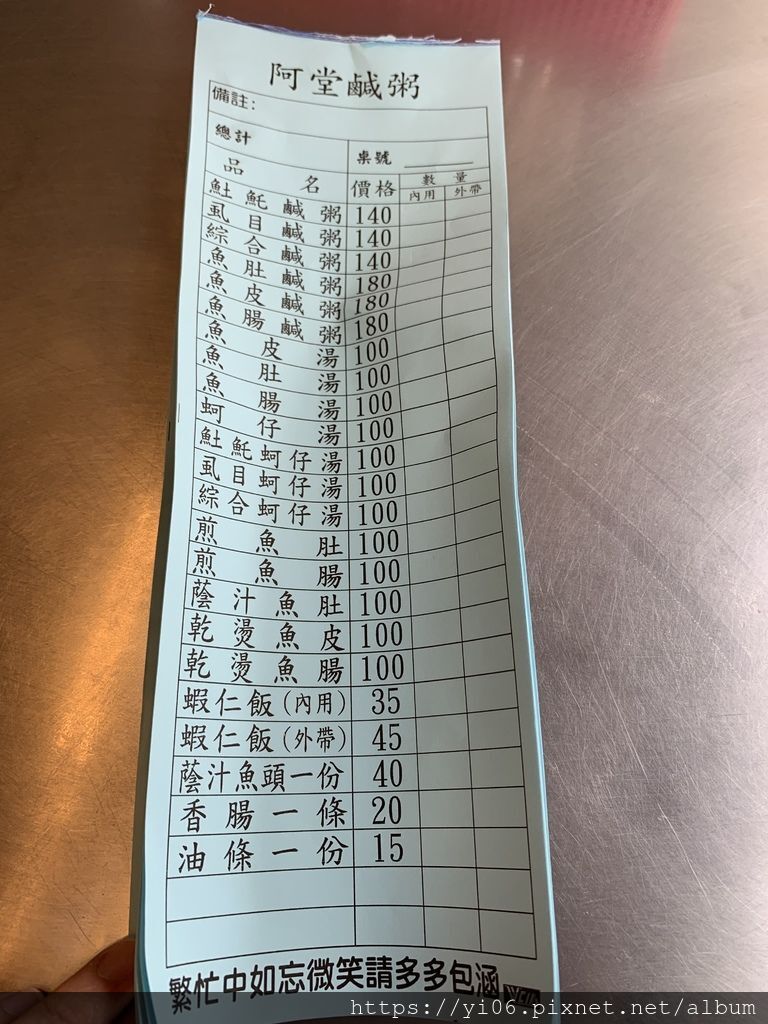 阿堂鹹粥
備註：
總計
桌號
品名 價格 數量
內用 外帶
魠魠鹹粥 140
虱目鹹粥 140
綜合鹹粥 140
魚肚鹹粥 180
魚皮鹹粥 180
魚腸鹹粥 180
魚皮湯 100
魚肚湯 100
魚腸湯 100
蚵仔湯 100
魠魠蚵仔湯 100
虱目蚵仔湯 100
綜合蚵仔湯 100
煎魚肚 100
煎魚腸 100
蔭汁魚肚 100
乾燙魚皮 100
乾燙魚腸 100
蝦仁飯(內用) 35
蝦仁飯(外帶) 45
蔭汁魚頭一份 40
香腸一條 20
油條一份 15
繁忙中如忘微笑請多多包涵
https://yi06.pixnet.net/album